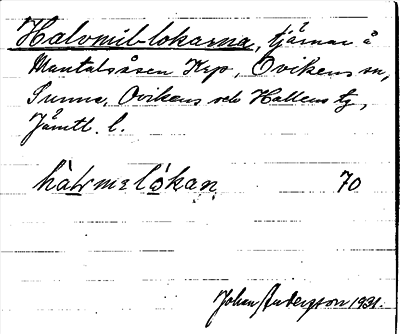 Halvmil-lokarna, tjärnar å
Mantalsåsen Krp, Ovikens sn,
Sunne, Ovikens och Hallens tg,
Jämtl. l.
hàlvmelókan 70
Johan Andersson 1931.